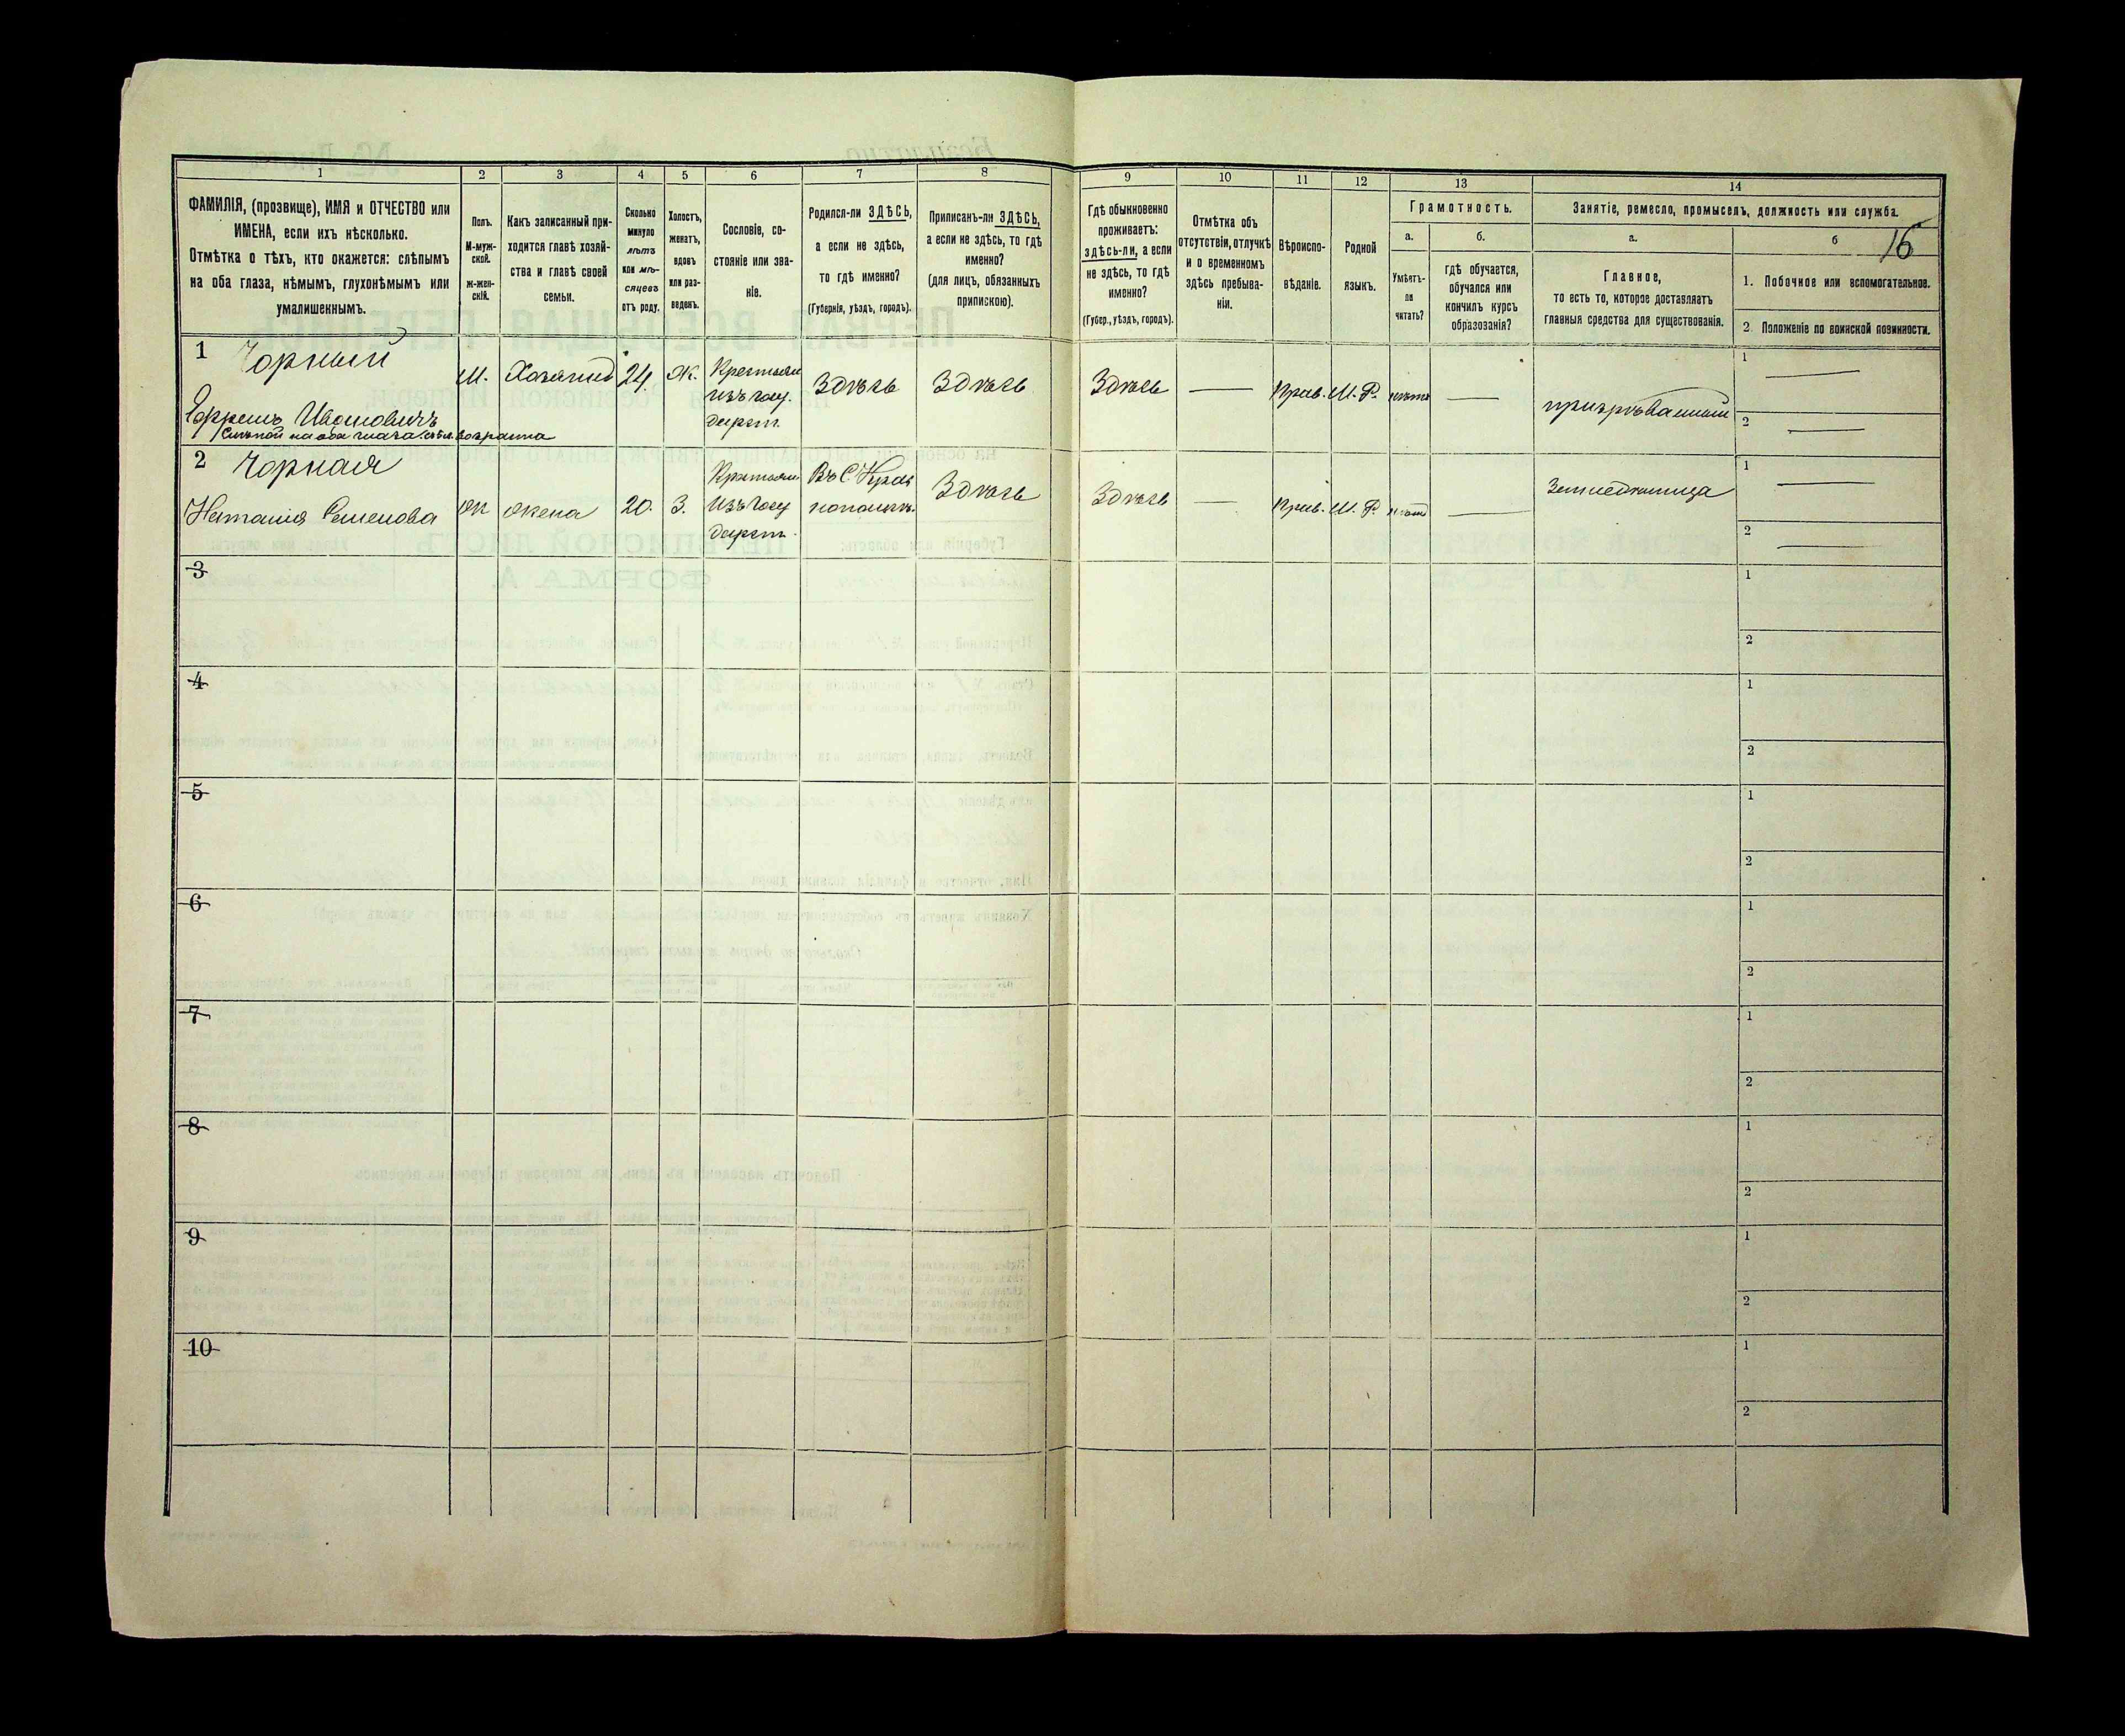 16
1 2 3 4 5 6 7 8 9 10 11 12 13 14
ФАМИЛІЯ, (прозвище), ИМЯ и ОТЧЕСТВО или
ИМЕНА, если ихъ нѣсколько.
Отмѣтка о тѣхъ, кто окажется: слѣпымъ
на оба глаза, нѣмымъ, глухонѣмымъ или
умалишеннымъ.
Полъ.
М-муж-
ской.
ж-жен-
скій.
Какъ записанный при-
ходится главѣ хозяй-
ства и главѣ своей
семьи.
Сколько
минуло
лѣтъ
или мѣ-
сяцевъ
отъ роду.
Холостъ,
женатъ,
вдовъ
или раз-
веденъ.
Сословіе, со-
стояніе или зва-
ніе.
Родился-ли ЗДѢСЬ,
а если не здѣсь,
то гдѣ именно?
(Губернія, уѣздъ, городъ).
Приписанъ-ли ЗДѢСЬ,
а если не здѣсь, то гдѣ
именно?
(для лицъ, обязанныхъ
припискою).
Гдѣ обыкновенно
проживаетъ:
здѣсь-ли, а если
не здѣсь, то гдѣ
именно?
(Губер., уѣздъ, городъ).
Отмѣтка объ
отсутствіи, отлучкѣ
и о временномъ
здѣсь пребыва-
ніи.
Вѣроиспо-
вѣданіе.
Родной
языкъ.
Грамотность.
а.
Умѣетъ-
ли
читать?
б.
гдѣ обучается,
обучался или
кончилъ курсъ
образованія?
Занятіе, ремесло, промыселъ, должность или служба.
а.
Главное,
то есть то, которое доставляетъ
главныя средства для существованія.
б
1. Побочное или вспомогательное.
2. Положеніе по воинской повинности.
1 Чорный
Ефремъ Ивановичъ
Слѣпой на оба глаза
возраста
М.
Хозяинъ
24
Ж.
Крестьян
изъ госу
дарст.
Здѣсь
Здѣсь
Здѣсь
—
Прав.
М. Р.
нѣтъ
—
призрѣваемый
1 —
2 —
2 Чорная
Наталія Семенова
Ж
жена
20.
З.
Крестьян
изъ госу
дарст.
Въ С.
Здѣсь
Здѣсь
—
Прав.
М. Р.
нѣтъ
—
Земледѣлица
1 —
2 —
3
1
2
4
1
2
5
1
2
6
1
2
7
1
2
8
1
2
9
1
2
10
1
2